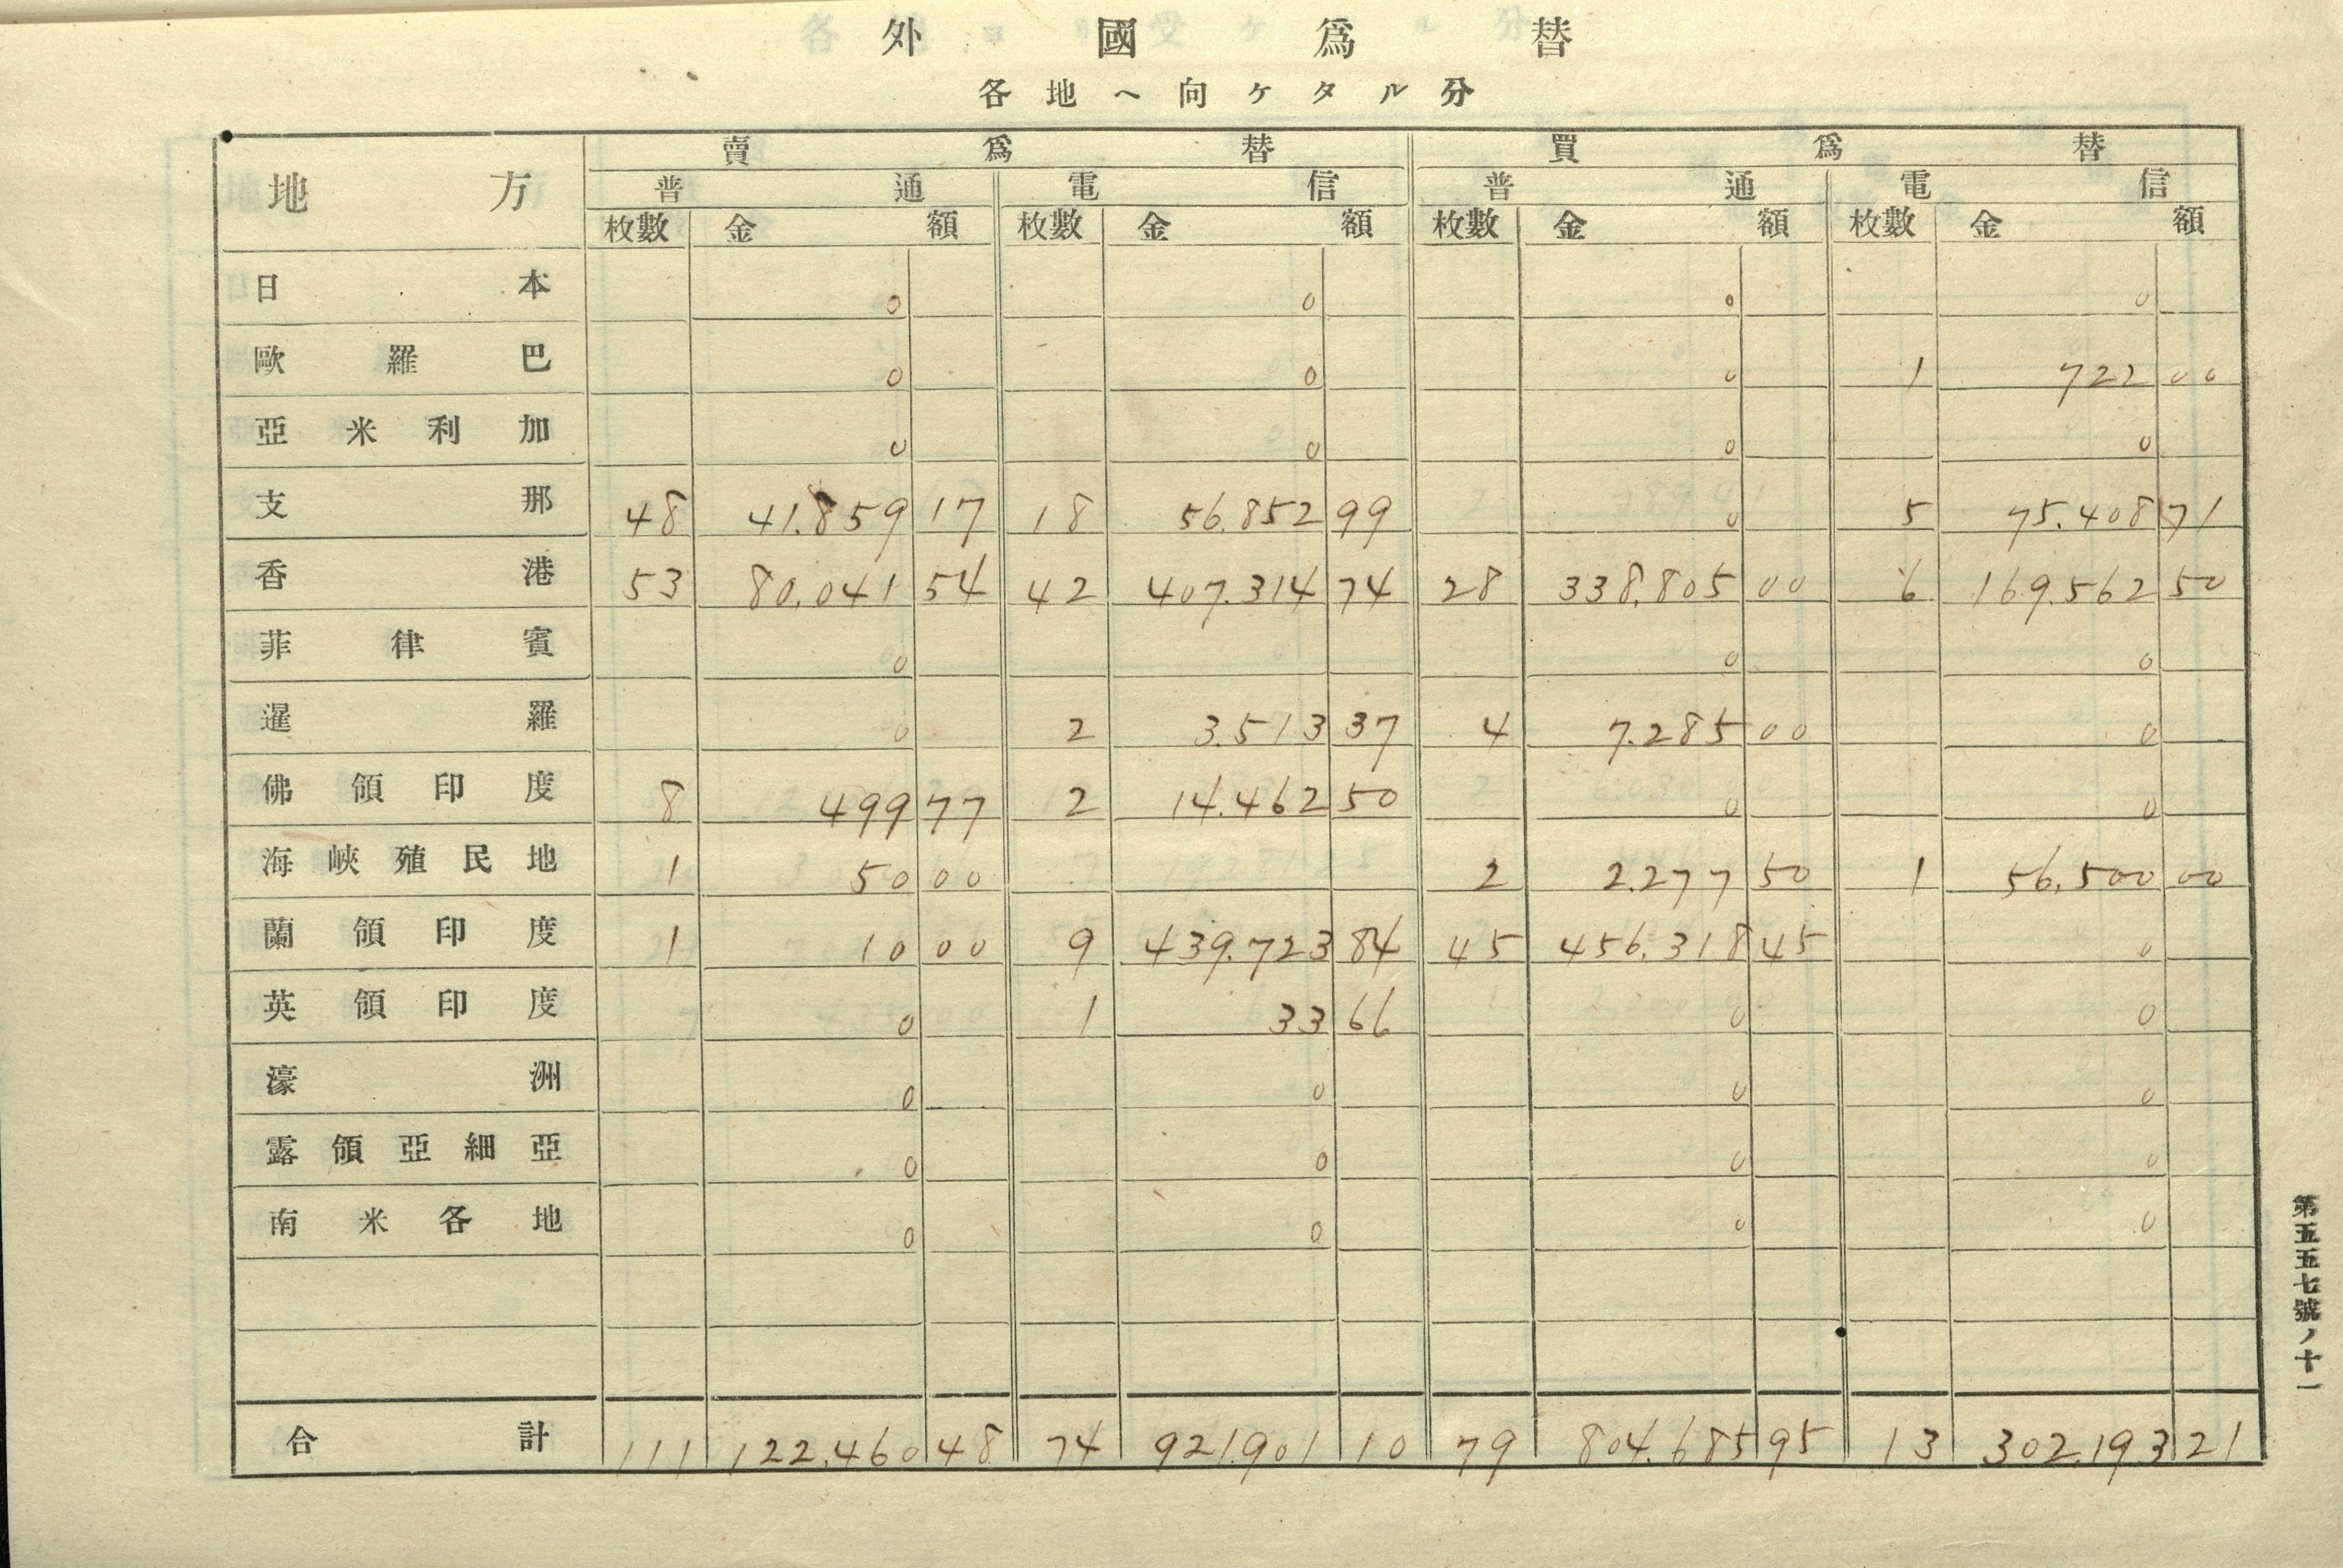 外國爲替
各地ヘ向ケタル分
地方 賣爲替 買爲替
普通 電信 普通 電信
枚數 金額 枚數 金額 枚數 金額 枚數 金額
日本 0 0 0 0
歐羅巴 0 0 0 1 722 00
亞米利加 0 0 0 0
支那 48 41.859 17 18 56.852 99 0 5 75.408 71
香港 53 80.041 54 42 407.314 74 28 338.805 00 6 169.562 50
菲律賓 0 0 0
暹羅 0 2 3.513 37 4 7.285 00 0
佛領印度 8 499 77 2 14.462 50 0 0
海峽殖民地 1 50 00 2 2.277 50 1 56.500 00
蘭領印度 1 10 00 9 439.723 84 45 456.318 45 0
英領印度 0 1 33 66 0 0
濠洲 0 0 0 0
露領亞細亞 0 0 0 0
南米各地 0 0 0 0
合計 111 122.460 48 74 921.901 10 79 804.685 95 13 302.193 21
第五五七號ノ十一